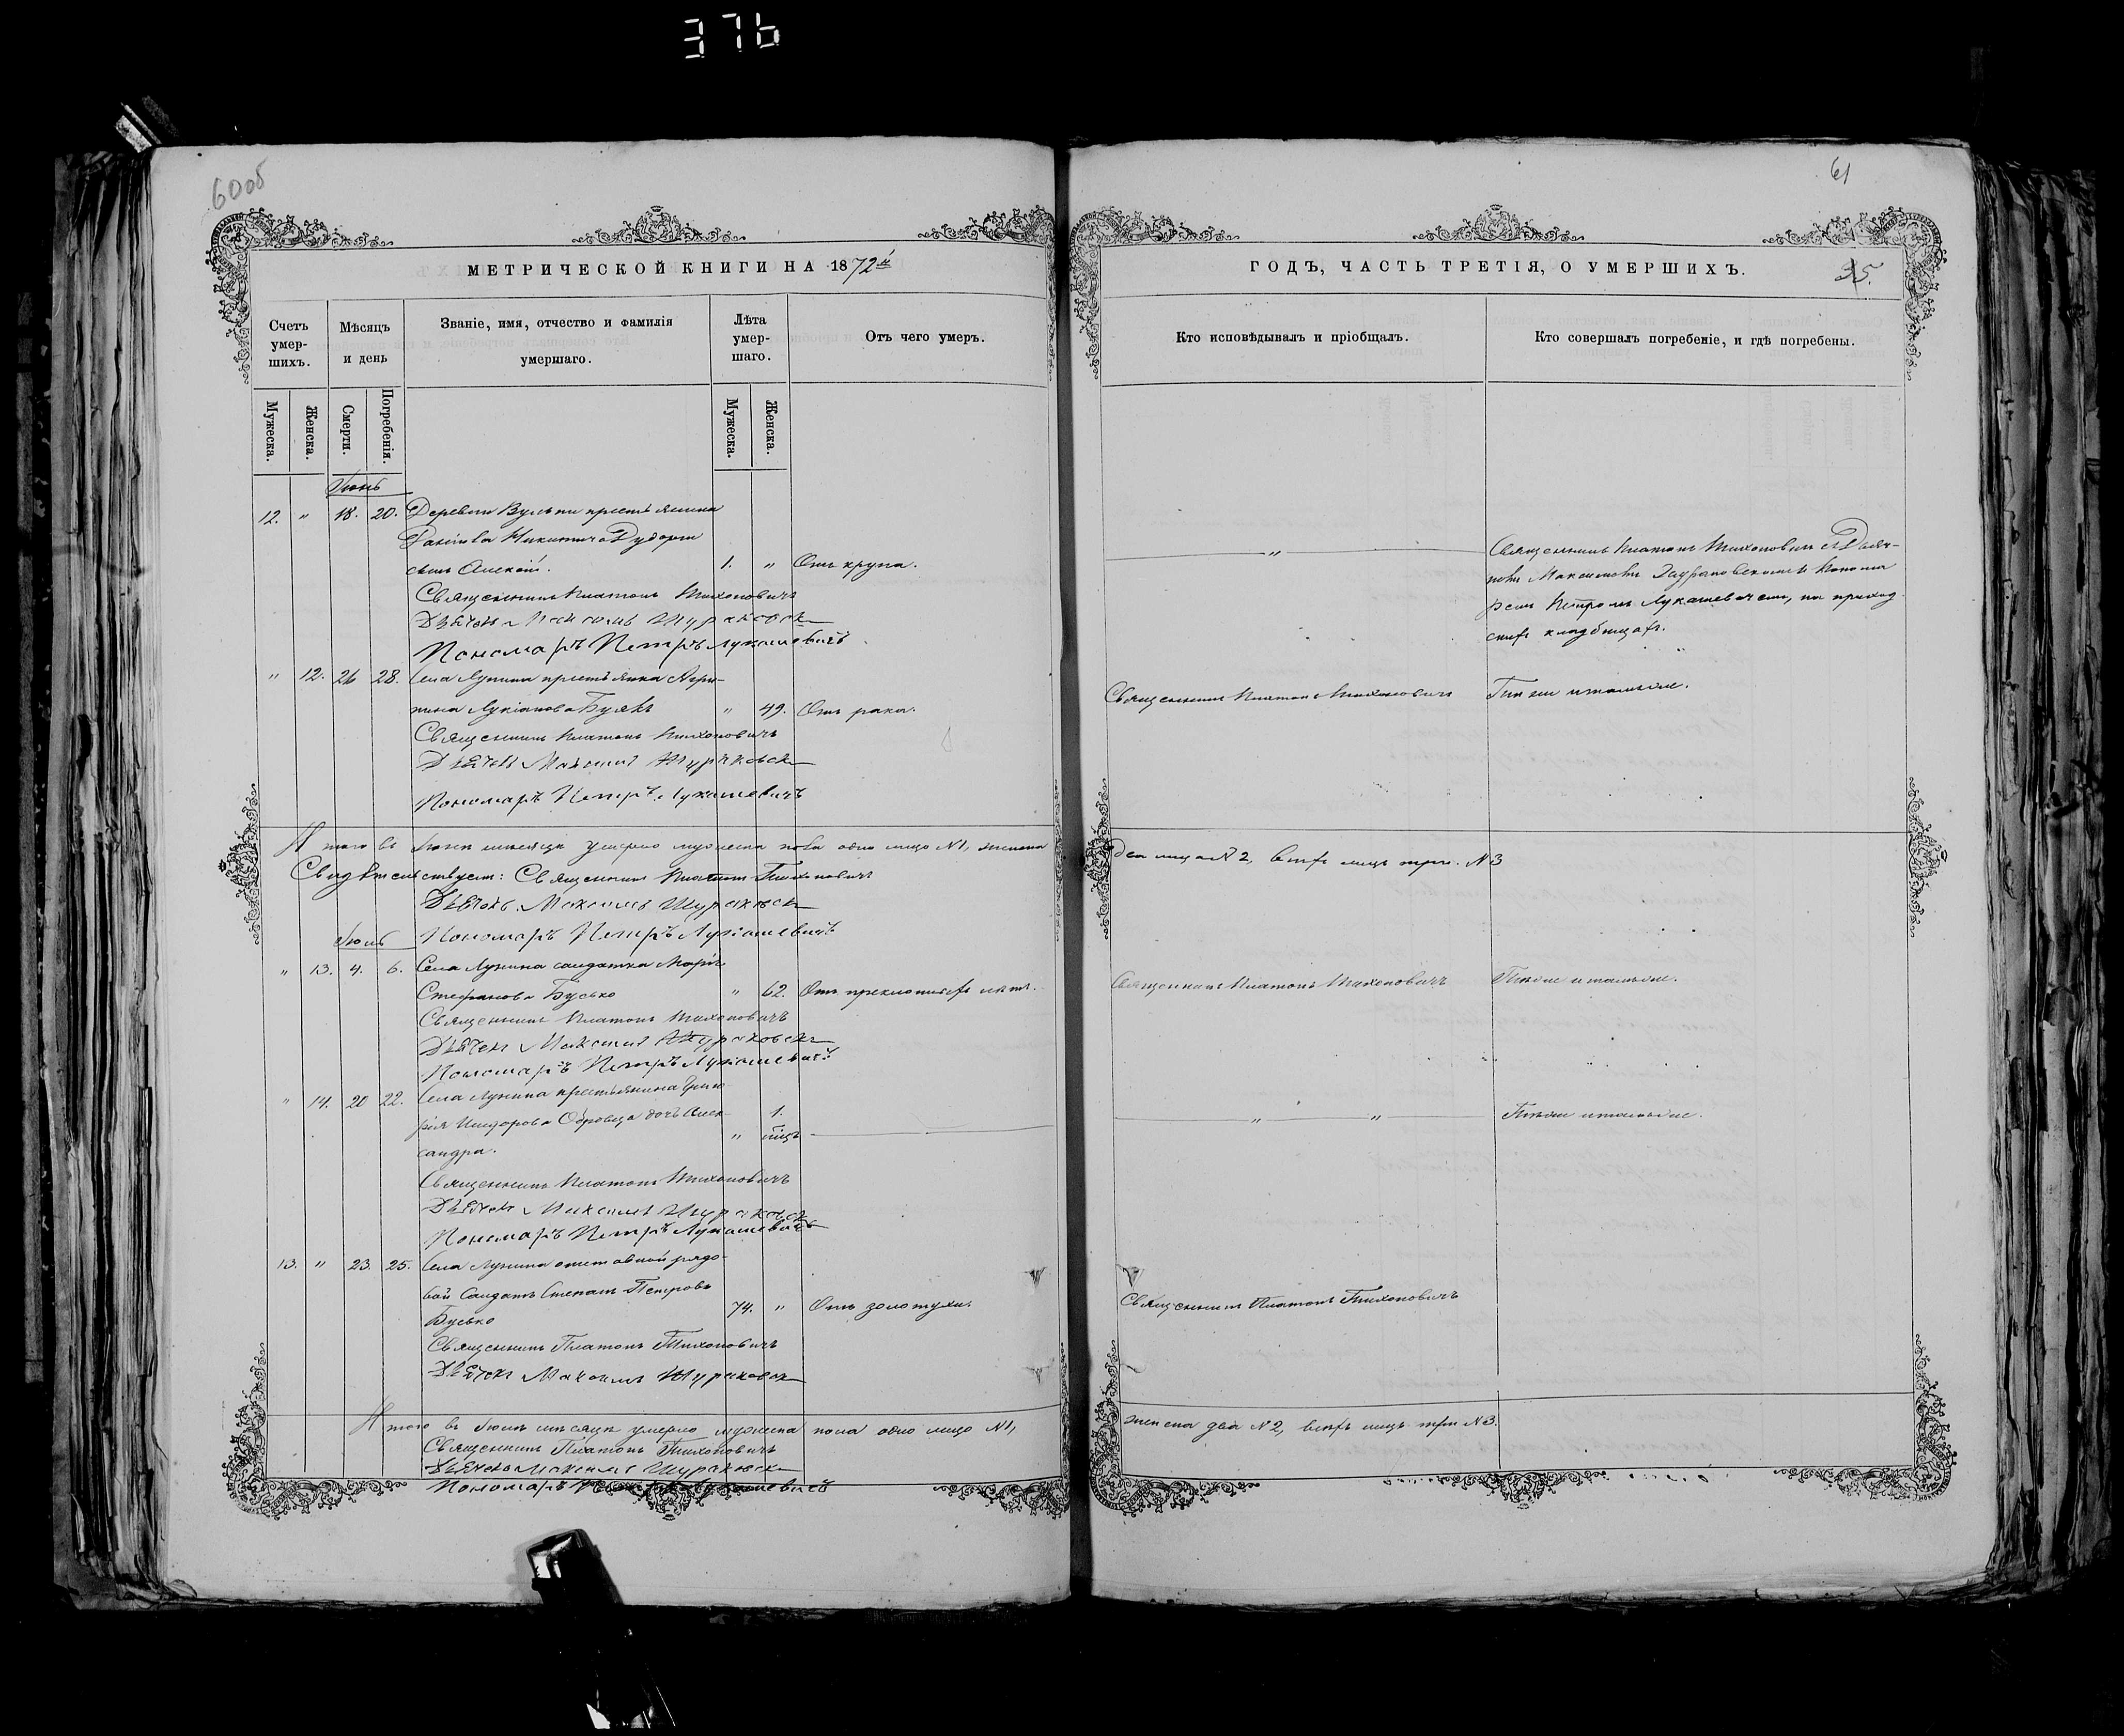 376
60об
61
МЕТРИЧЕСКОЙ КНИГИ НА 1872й
ГОДЪ, ЧАСТЬ ТРЕТІЯ, О УМЕРШИХЪ.
35.
Счетъ умер-шихъ.
Мѣсяцъ и день
Званіе, имя, отчество и фамилія умершаго.
Лѣта умер-шаго.
Отъ чего умеръ.
Кто исповѣдывалъ и пріобщалъ.
Кто совершалъ погребеніе, и гдѣ погребены.
Мужеска.
Женска.
Смерти.
Погребенія.
Мужеска.
Женска.
Іюнь
12. " 18. 20. Деревни Вульки крестьянина
Никитича
сынъ Алексій. 1. " Отъ крупа.
Священникъ Платонъ Тихоновичъ
Дьячекъ Максимъ
Пономарь Петръ Лукашевичъ
"
Священникъ Платонъ Тихоновичъ съ Дьяч-
комъ Максимомъ и Понома
ремъ Петромъ Лукашевичемъ, на приход
скомъ кладбищѣ.
" 12. 26 28. Села Лунина крестьянка Агри-
пина Лукіанова " 49. Отъ рака.
Священникъ Платонъ Тихоновичъ
Дьячекъ Максимъ
Пономарь Петръ Лукашевичъ
Священникъ Платонъ Тихоновичъ
Тѣми и тамъ же.
Итого въ Іюнѣ мѣсяцѣ умерло мужеска пола одно лицо №1, женска
два лица №2, всѣхъ лицъ три. №3
Свидѣтельствуемъ: Священникъ Платонъ Тихоновичъ
Дьячекъ Максимъ
Пономарь Петръ Лукашевичъ
Іюль
" 13. 4. 6. Села Лунина солдатка Марія
Стефанова Бусько " 62. Отъ преклонныхъ лѣтъ.
Священникъ Платонъ Тихоновичъ
Дьячекъ Максимъ
Пономарь Петръ Лукашевичъ
Священникъ Платонъ Тихоновичъ
Тѣми и тамъ же.
" 14. 20 22. Села Лунина крестьянина Григо-
рія дочь Алек-
сандра. " 1.
Священникъ Платонъ Тихоновичъ
Дьячекъ Максимъ
Пономарь Петръ Лукашевичъ
" "
Тѣми и тамъ же.
13. " 23. 25. Села Лунина отставной рядо-
вой Солдатъ Степанъ Петровъ
Бусько 74. " Отъ золотухи.
Священникъ Платонъ Тихоновичъ
Дьячекъ Максимъ
Священникъ Платонъ Тихоновичъ
Итого въ Іюлѣ мѣсяцѣ умерло мужеска пола одно лицо №1,
женска два №2, всѣхъ лицъ три №3.
Священникъ Платонъ Тихоновичъ
Дьячекъ Максимъ
Пономарь Петръ Лукашевичъ